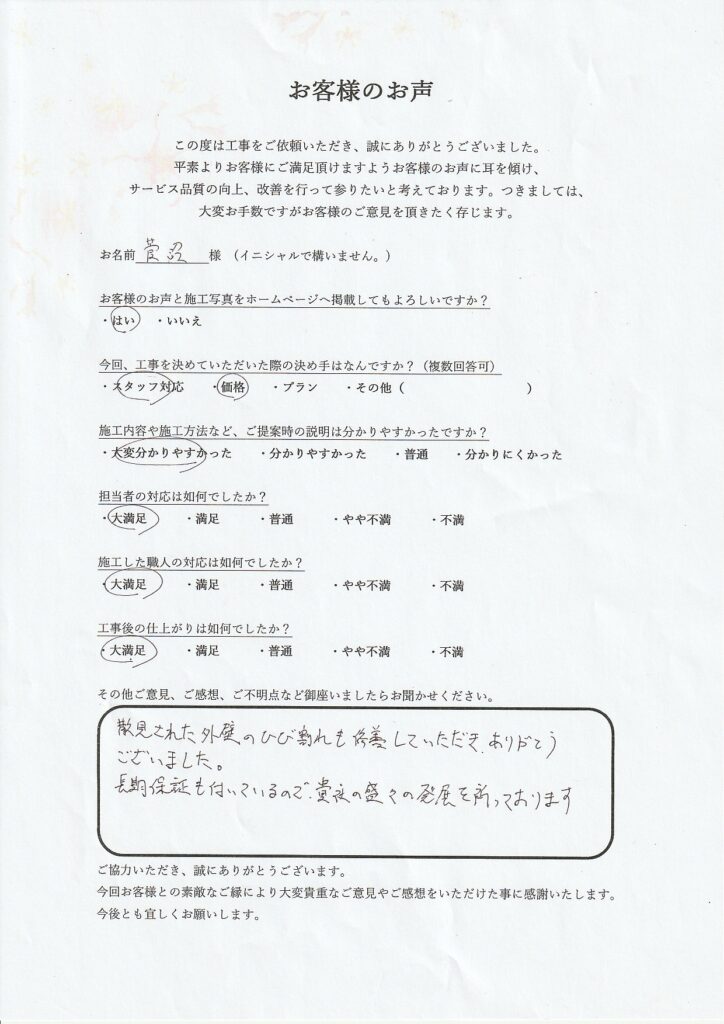 お客様のお声
この度は工事をご依頼いただき、誠にありがとうございました。
平素よりお客様にご満足頂けますようお客様のお声に耳を傾け、
サービス品質の向上、改善を行って参りたいと考えております。つきましては、
大変お手数ですがお客様のご意見を頂きたく存じます。
お名前 菅沼 様 （イニシャルで構いません。）
お客様のお声と施工写真をホームページへ掲載してもよろしいですか？
・はい ・いいえ
今回、工事を決めていただいた際の決め手はなんですか？（複数回答可）
・スタッフ対応 ・価格 ・プラン ・その他（ ）
施工内容や施工方法など、ご提案時の説明は分かりやすかったですか？
・大変分かりやすかった ・分かりやすかった ・普通 ・分かりにくかった
担当者の対応は如何でしたか？
・大満足 ・満足 ・普通 ・やや不満 ・不満
施工した職人の対応は如何でしたか？
・大満足 ・満足 ・普通 ・やや不満 ・不満
工事後の仕上がりは如何でしたか？
・大満足 ・満足 ・普通 ・やや不満 ・不満
その他ご意見、ご感想、ご不明点など御座いましたらお聞かせください。
散見された外壁のひび割れも修善していただき、ありがとう
ございました。
長期保証も付いているので、貴社の益々の発展を祈っております
ご協力いただき、誠にありがとうございます。
今回お客様との素敵なご縁により大変貴重なご意見やご感想をいただけた事に感謝いたします。
今後とも宜しくお願いします。